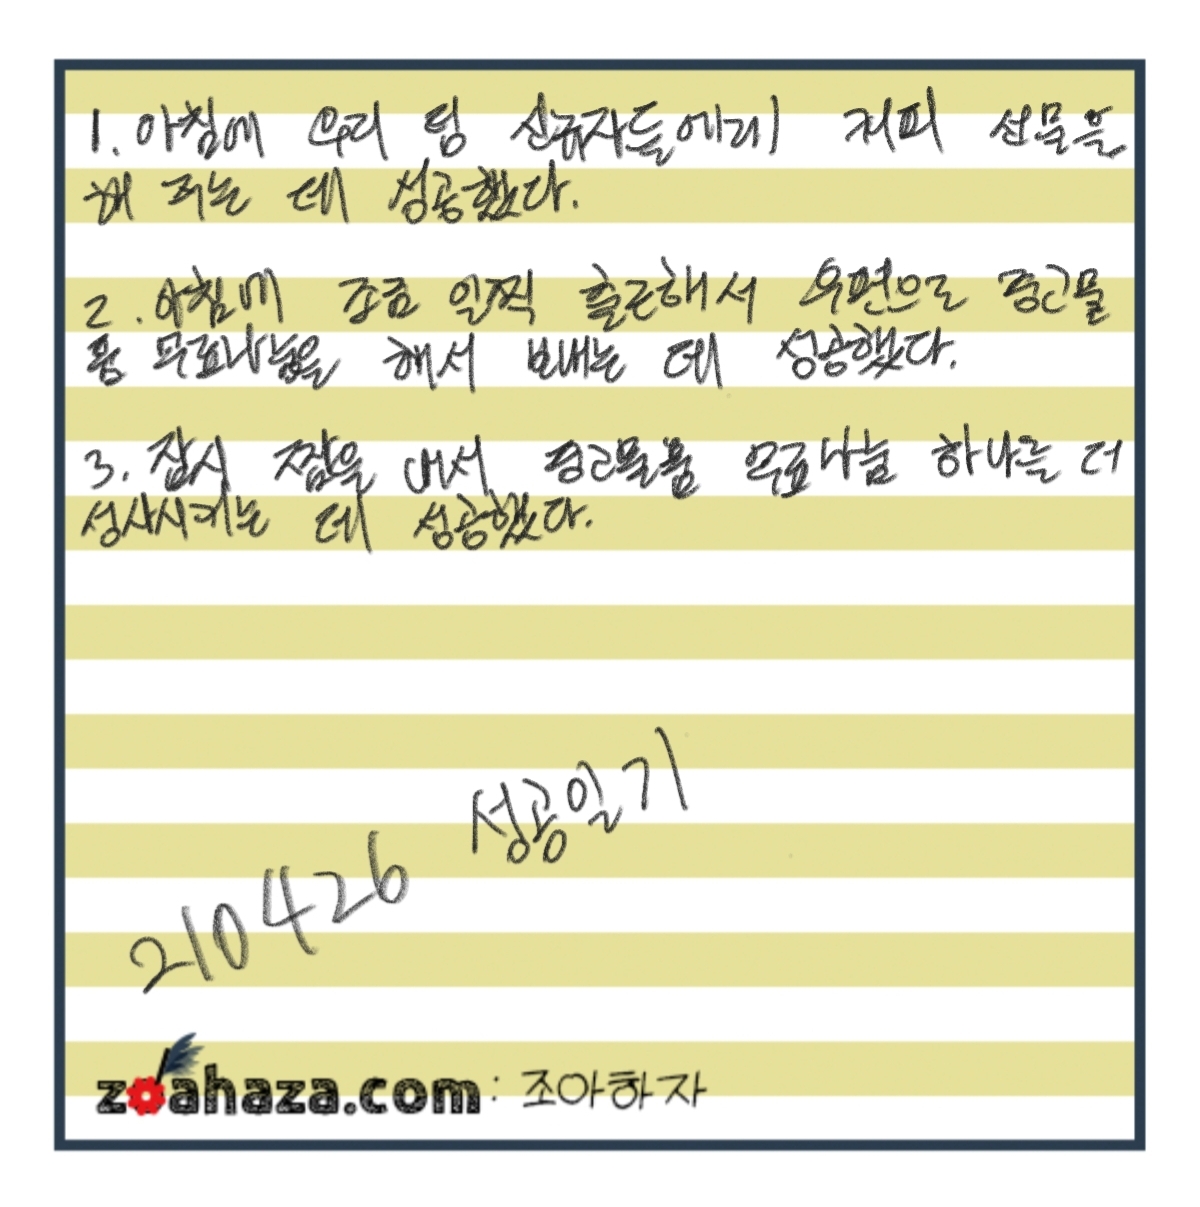 1. 아침에 우리 팀 신규자들에게 커피 선물을
해 주는 데 성공했다.
2. 아침에 조금 일찍 출근해서 우편으로 중고물
품 무료나눔을 해서 보내는 데 성공했다.
3. 잠시 짬을 내서 중고물품 무료나눔 하나를 더
성사시키는 데 성공했다.
210426 성공일기
zoahaza.com : 조아하자